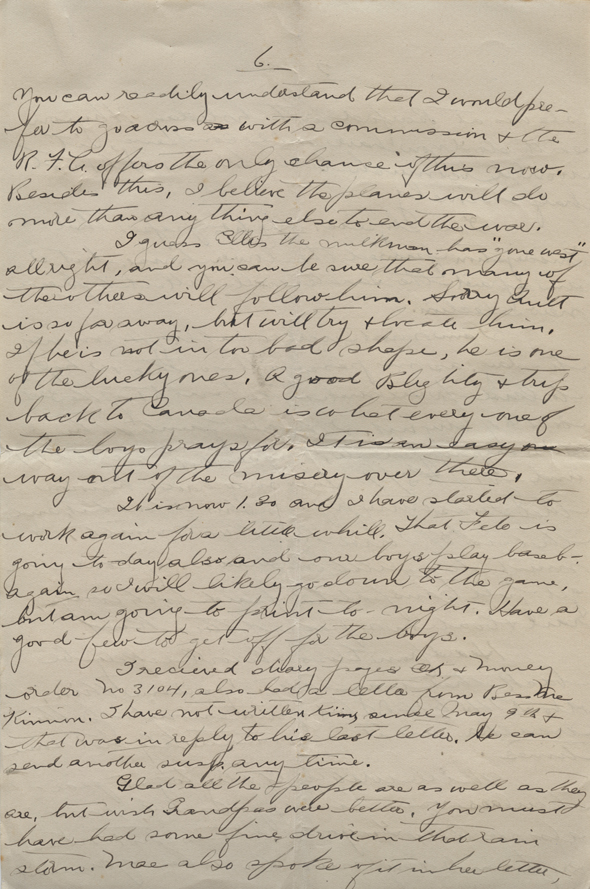 6.
You can readily understand that I would pre-
fer to go across as with a commission & the
R.F.C. offers the only chance of this now.
Besides this, I believe the planes will do
more than any thing else to end the war.
I guess the milkman has "gone west"
allright, and you can be sure that many of
the others will follow him. Sorry
is so far away, but will try & locate him.
If he is not in too bad shape, he is one
of the lucky ones. A good Blighty & trip
back to Canada is what every one of
the boys prays for. It is an easy
way out of the misery over there.
It is now 1.30 and I have started to
work again for a little while. That Fete is
going to day also and our boys play baseb-
again so I will likely go down to the game,
but am going to print to-night. Have a
good few to get off for the boys.
I recieved diary pages & Money
order No 3104, also had a letter from Bess
Kinnon. I have not written King since May 9th &
that was in reply to his last letter. He can
send another any time.
Glad all the people are as well as they
are, but wish Grandpas were better. You must
have had some fine drive in that rain
storm. Mae also spoke of it in her letter,